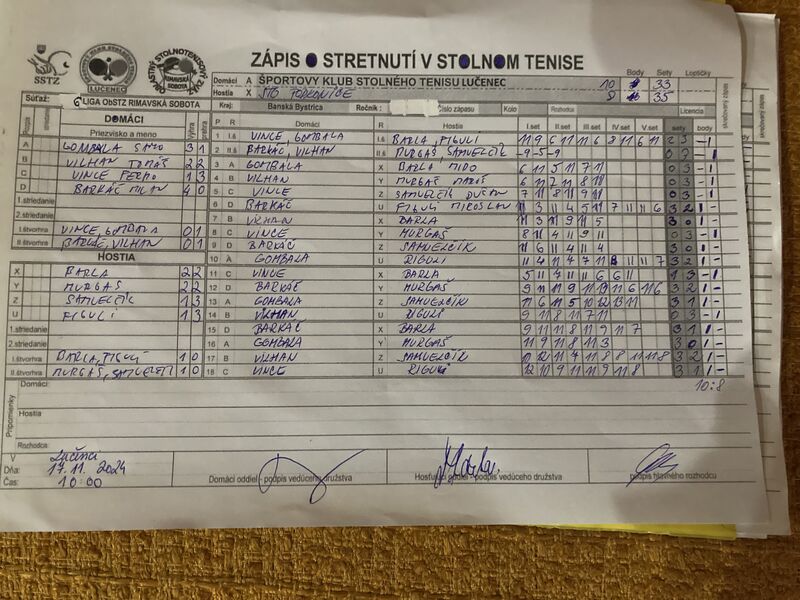 ZÁPIS O STRETNUTÍ V STOLNOM TENISE
SSTZ
LUČENEC
RIMAVSKÁ SOBOTA
Body Sety Loptičky
Domáci A ŠPORTOVÝ KLUB STOLNÉHO TENISU LUČENEC 10 33
Hostia X STO 8 35
Súťaž: 6 LIGA ObSTZ RIMAVSKÁ SOBOTA
Kraj: Banská Bystrica Ročník: Číslo zápasu Kolo Rozhodca Licencia
DOMÁCI
Priezvisko a meno
P R Domáci R Hostia I.set II.set III.set IV.set V.set sety body
A GOMBALA SAMO 3 1
B VILHAN TOMÁŠ 2 2
C VINCE PEDRO 1 3
D BARKÁČ MILAN 4 0
1.striedanie
2.striedanie
I.štvorhra VINCE, GOMBALA 0 1
II.štvorhra BARKÁČ, VILHAN 0 1
HOSTIA
X BARLA 2 2
Y MURGAŠ 2 2
Z SAMUELČÍK 1 3
U FIGULI 1 3
1.striedanie
2.striedanie
I.štvorhra BARLA, FIGULI 1 0
II.štvorhra MURGAŠ, SAMUELČÍ 1 0
1 I.š VINCE, GOMBALA I.š BARLA, FIGULI 11 9 6 11 11 6 8 11 6 11 2 3 -1
2 II.š BARKÁČ, VILHAN II.š MURGAŠ, SAMUELČÍK -9 -5 -9
3 A GOMBALA X BARLA MIRO 6 11 5 11 7 11 0 3 -1
4 B VILHAN Y MURGAŠ MAROŠ 0 3 -1
5 C VINCE Z SAMUELČÍK DUŠAN 7 11 8 11 9 11 0 3 -1
6 D BARKÁČ U FIGULI MIROSLAV 3 2 1-
7 B VILHAN X BARLA 3 0 1-
8 C VINCE Y MURGAŠ 8 11 4 11 9 11 0 3 -1
9 D BARKÁČ Z SAMUELČÍK 11 6 11 4 11 4 3 0 1-
10 A GOMBALA U FIGULI 3 2 1-
11 C VINCE X BARLA 5 11 4 11 11 6 6 11 1 3 -1
12 D BARKÁČ Y MURGAŠ 3 2 1-
13 A GOMBALA Z SAMUELČÍK 11 6 11 5 10 12 13 11 3 1 1-
14 B VILHAN U FIGULI 9 11 8 11 7 11 0 3 -1
15 D BARKÁČ X BARLA 9 11 11 8 11 9 11 7 3 1 1-
16 A GOMBALA Y MURGAŠ 11 9 11 8 11 3 3 0 1-
17 B VILHAN Z SAMUELČÍK 10 12 11 4 11 8 8 11 11 8 3 2 1-
18 C VINCE U FIGULI 12 10 9 11 11 9 11 8 3 1 1-
10:8
Pripomienky
Domáci:
Hostia:
Rozhodca:
V Lučenci
Dňa: 17.11.2024
Čas: 10:00
Domáci oddiel - podpis vedúceho družstva
Hosťujúci oddiel - podpis vedúceho družstva
podpis hlavného rozhodcu